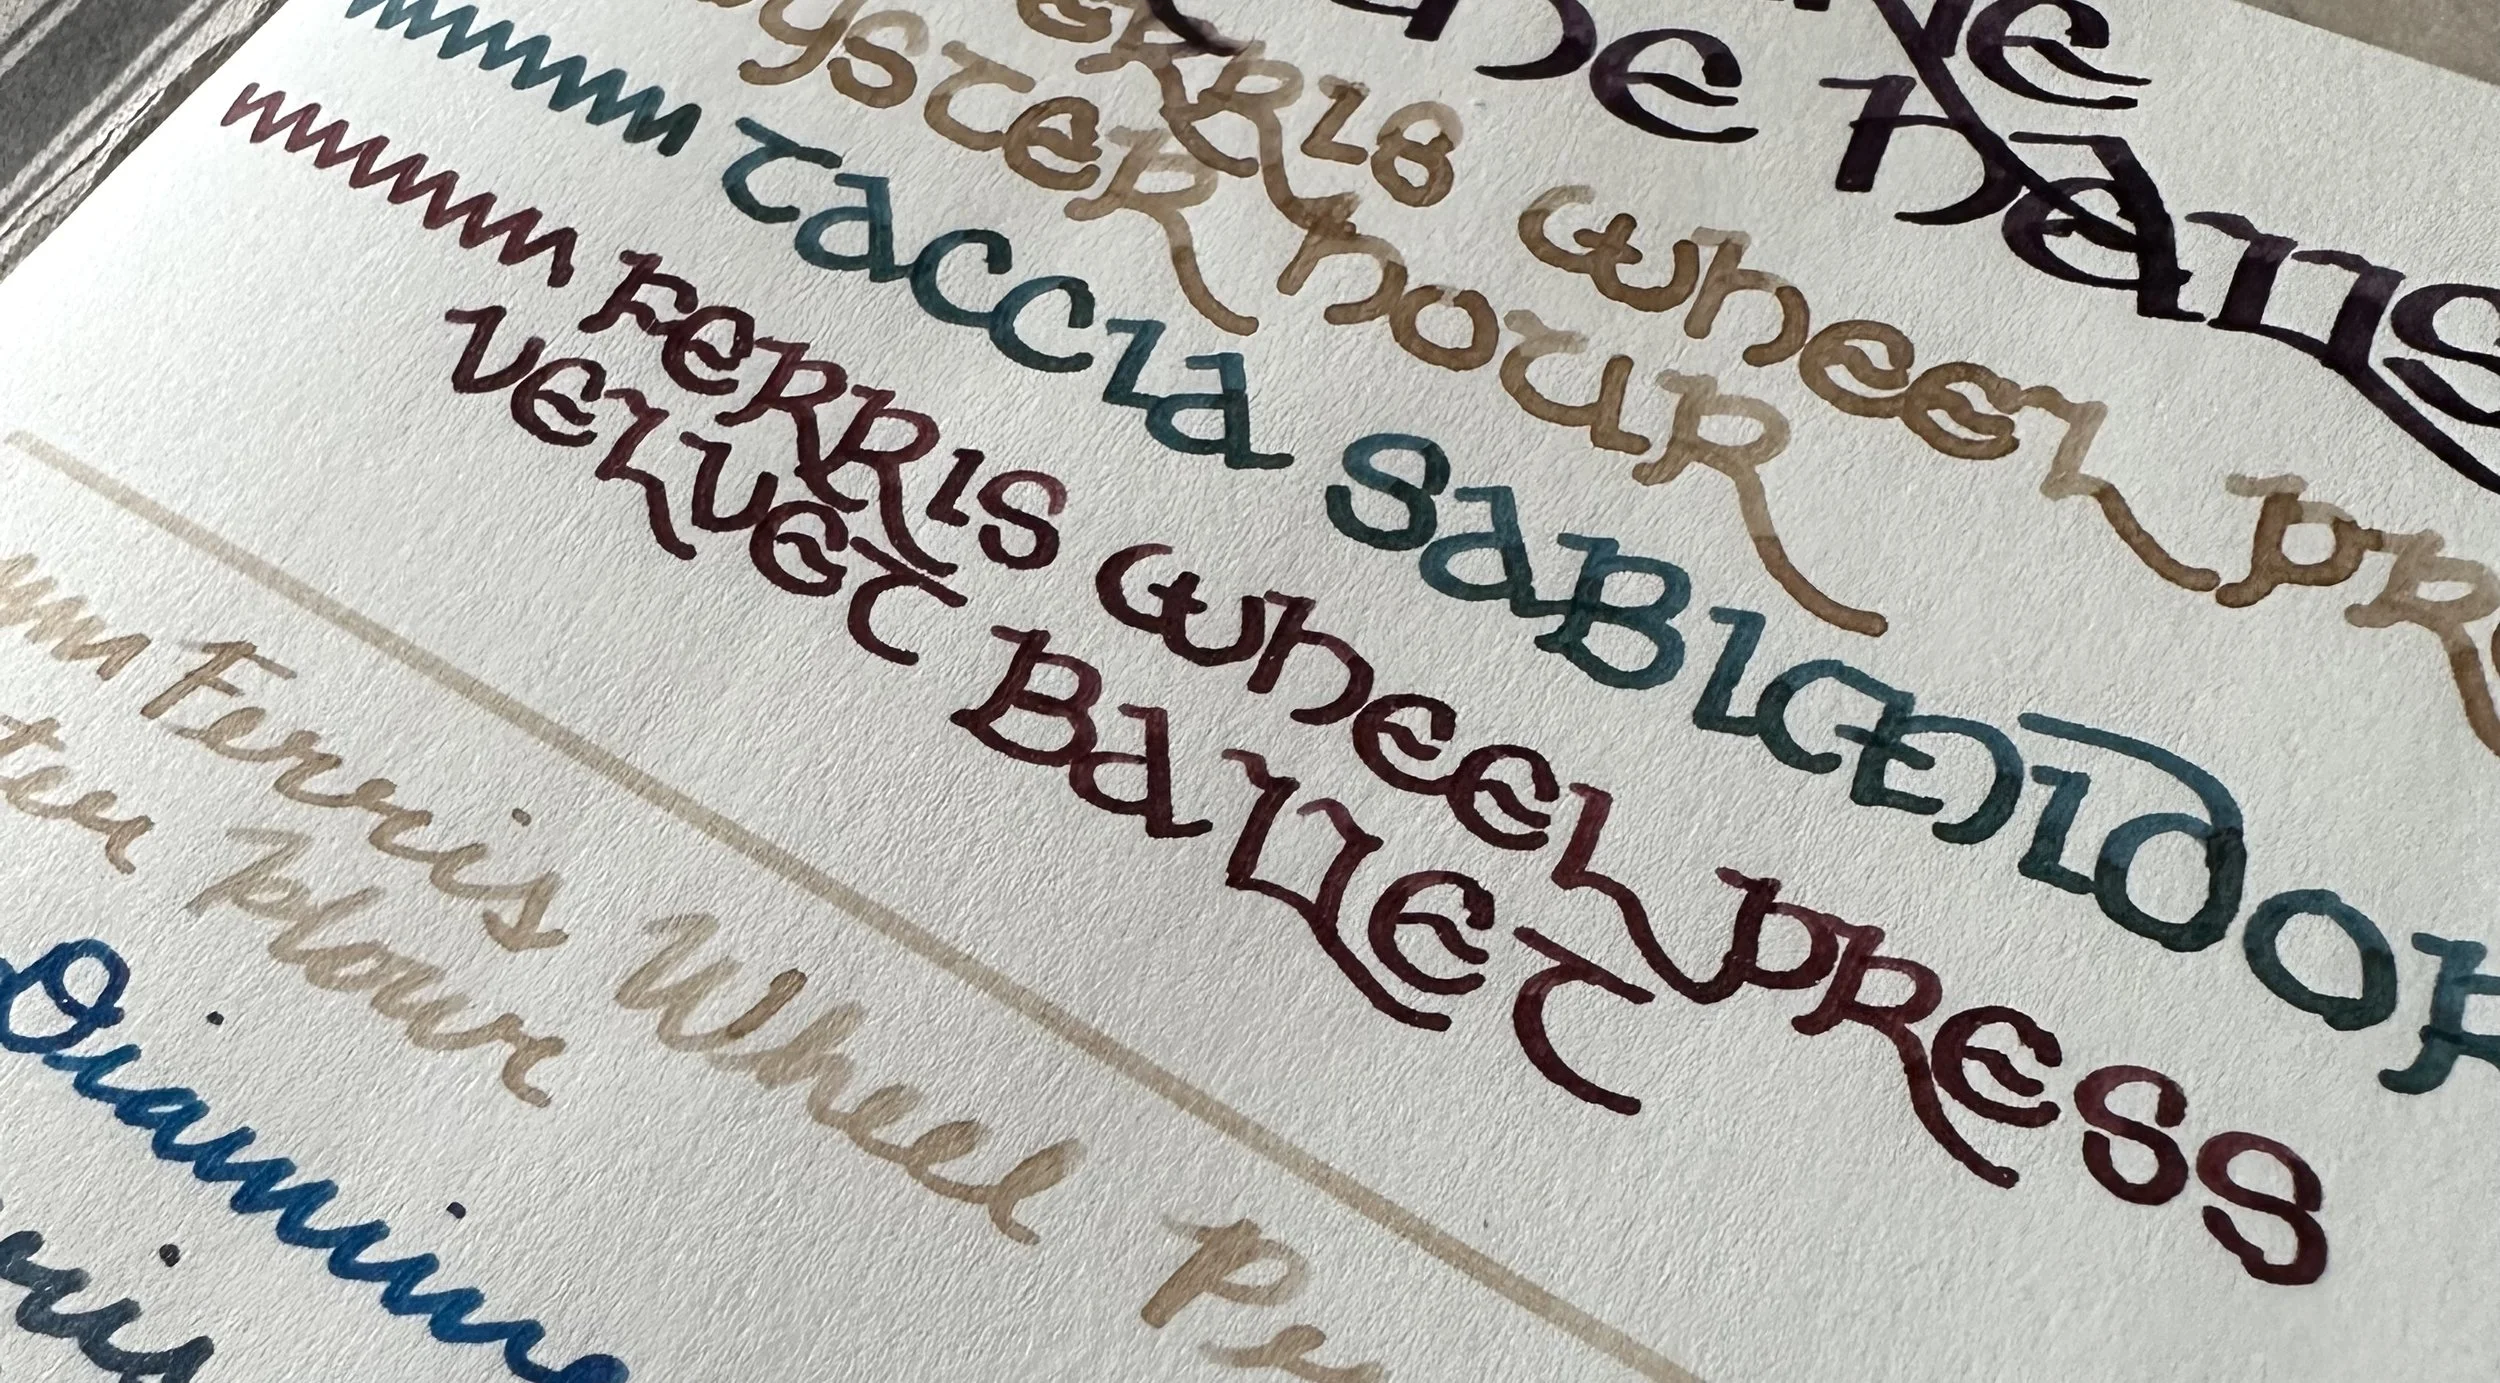 he Hans
erris Wheel Pr
yster Hour
Taccia Sabimidor
Ferris Wheel Press
Velvet Ballet
Ferris Wheel Pr
ter Hour
Diamine